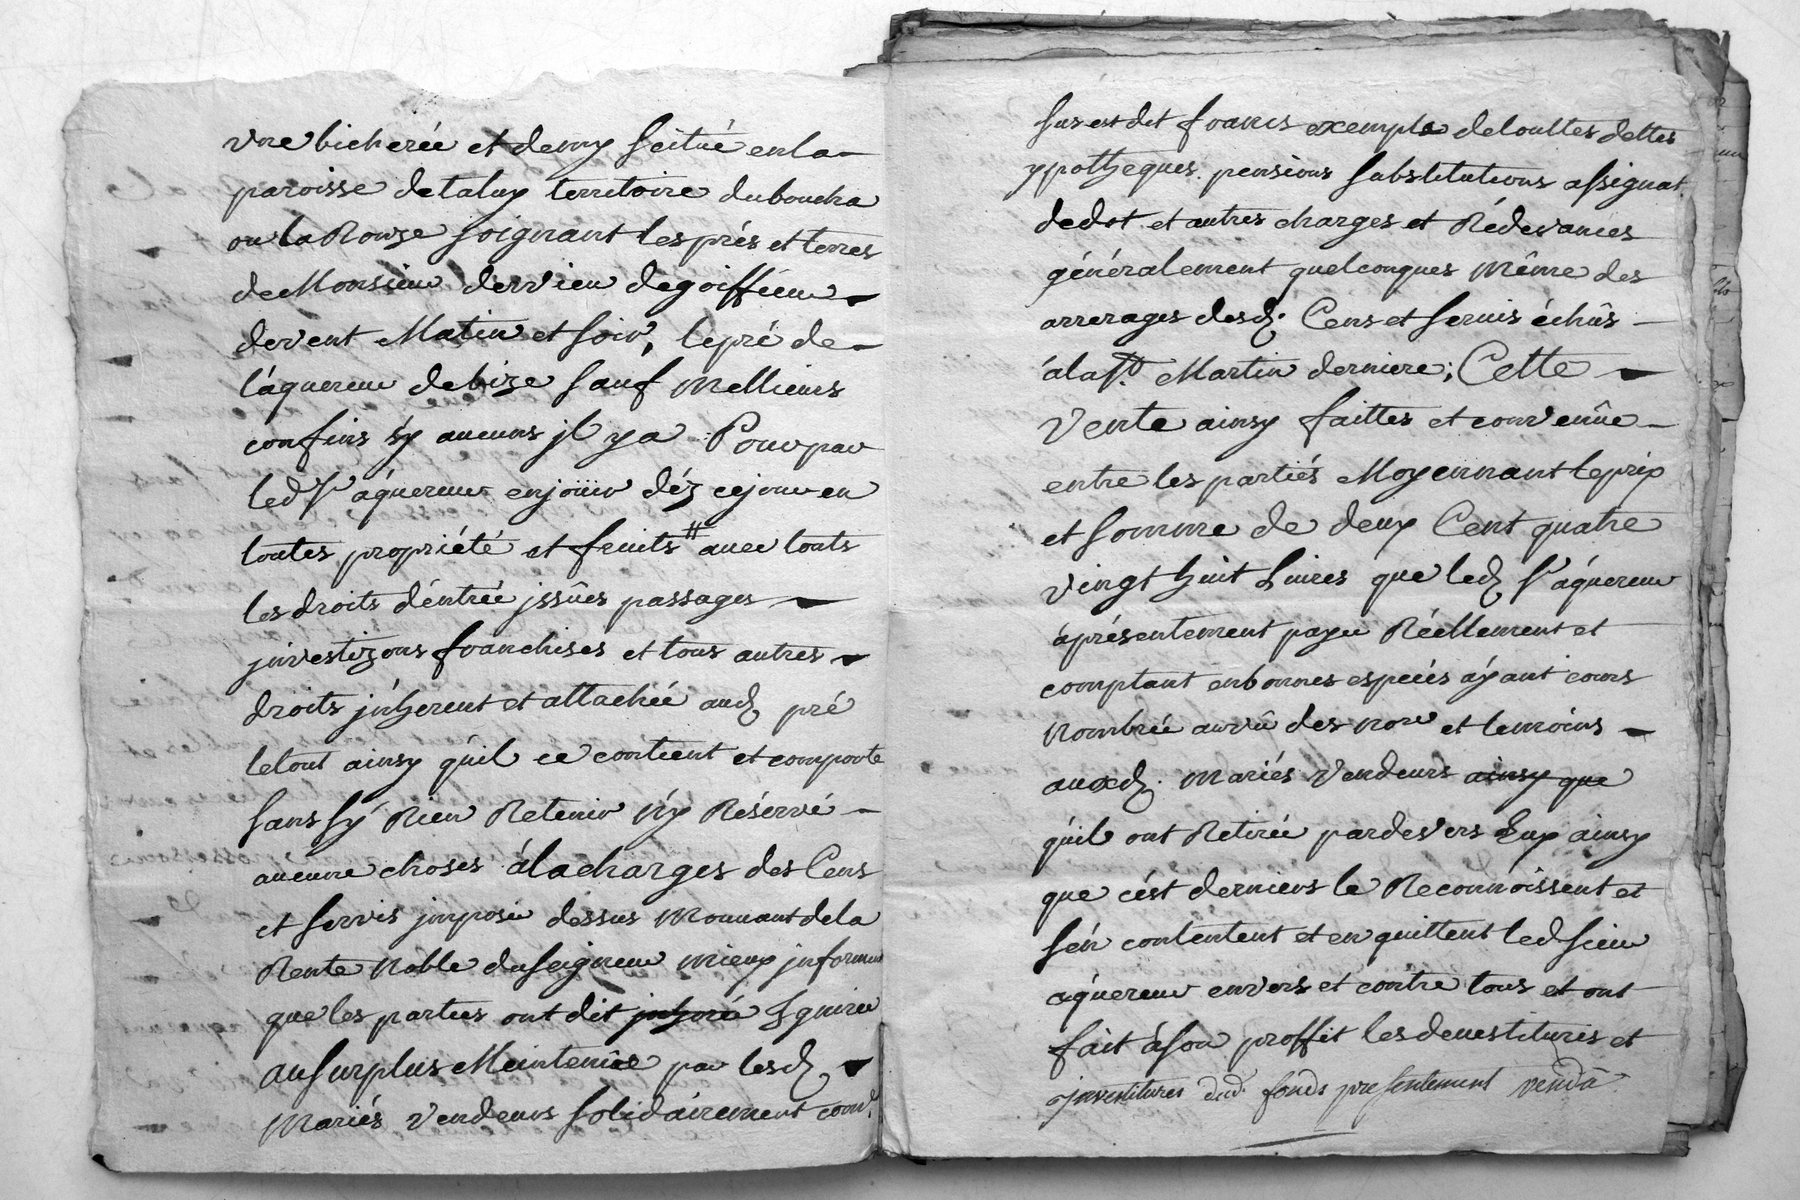 vne bicherée et demy scitué en la
paroisse de taluy territoire du boucha
ou la Ronze joignant les prés et terres
de Monsieur dervieu de goiffieu
devent Matin et soir, le pré de
l'áquereur de bize sauf mellieurs
confins sy aucuns jl y a Pour par
led Sr áquereur en joüir déz ce jour en
toutes propriété et fruits # avec touts
les droits d'éntréé jssûes passages
jnvestizons franchises et tous autres
droits jnherent et attachée aud pré
le tout ainsy qúil ce contient et comporte
sans sy Rien Retenir n'y Réservé
aúcune choses á la charges des Cens
et servis jmposé dessus mouvant de la
Rente Noble du seigneur mieux jnformé
que les parties ont dit jgnoré Ignirer
au surplus Meintenûe par lesd
Mariés vendeurs solidáirement comme
sus est dit francs exempts de touttes dettes
ypotheques. pensions substitutions assignat.
de dot et autres charges et Rédevances
généralement quelconques même des
arrerages desd. Cens et servis échûs
á la St. Martin derniere; Cette
vente ainsy faittes et convenûe
entre les partiés Moyennant le prix
et somme de deux Cent quatre
vingt huit Livres que led Sr áquereur
á présentement payé Réellement et
comptant en bonnes espécés áyant cours
nombréé au vû des nore et temoins
auxd. mariés vendeurs ainsy que
qúil ont Retirée pardevers Eux ainsy
que cést derniers le Reconnoissent et
sén contentent et en quittent led sieur
áquereur envers et contre tous et ont
fait á son proffit les devestitures et
jnvestitures dud. fonds presentement vendû